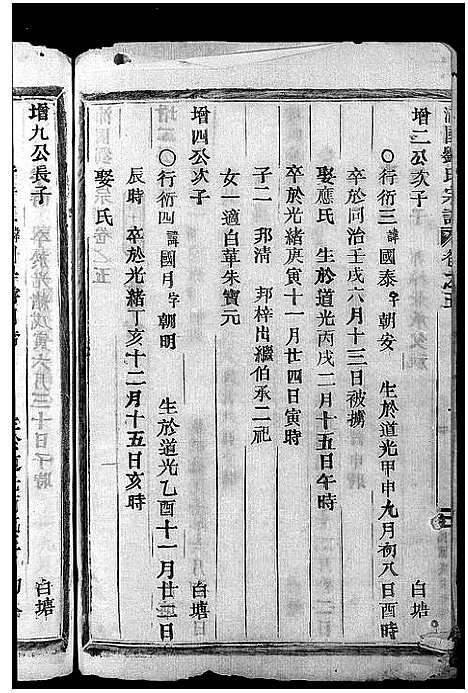 劉氏宗譜 卷之五
增二公次子 白塘
○行衍三諱國泰字朝安 生於道光甲申九月初八日酉時
卒於同治壬戌六月十三日被擄
娶應氏 生於道光丙戌二月十五日午時
卒於光緒庚寅十一月廿四日寅時
子二 邦清 邦梓出繼伯承二祀
女一適白華朱寶元
增四公次子 白塘
○行衍四諱國月字朝明 生於道光乙酉十一月廿二日
辰時 卒於光緒丁亥十二月十五日亥時
娶宗氏
增九公長子 白塘